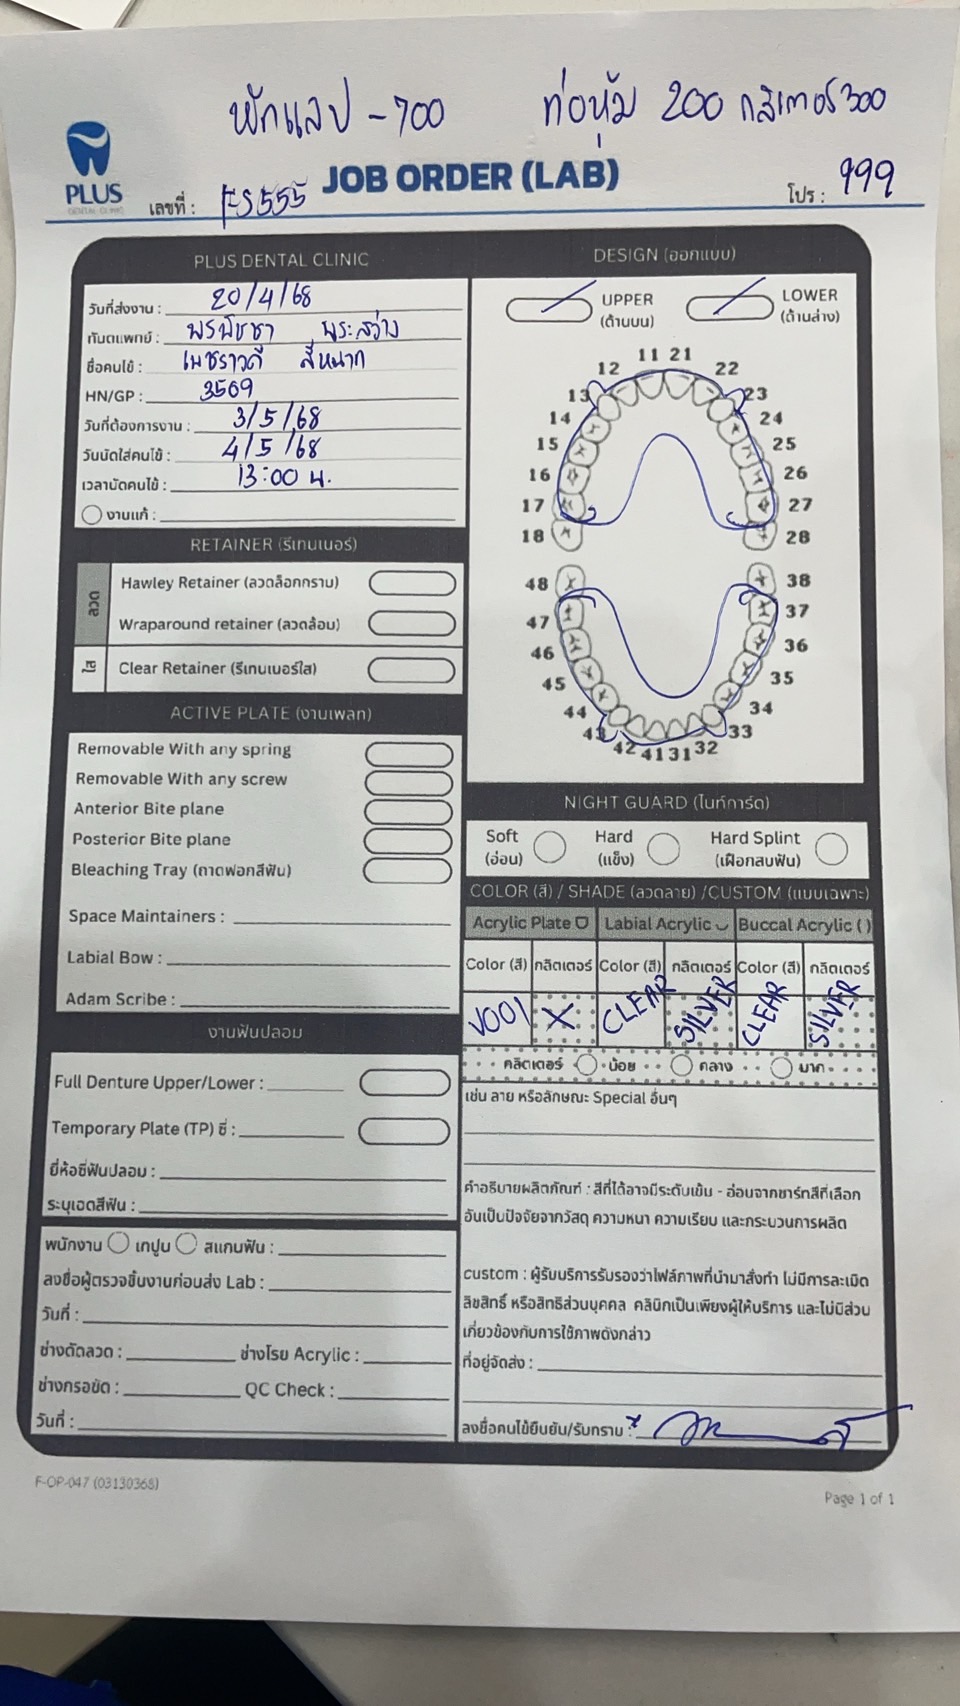 หักแลป -700 ท่อหุ้ม 200 กลิตเตอร์ 300
PLUS
DENTAL CLINIC
JOB ORDER (LAB)
เลขที่ : FS555
โปร : 999
PLUS DENTAL CLINIC
วันที่ส่งงาน : 20/4/68
ทันตแพทย์ : พรพิชชา พระสว่าง
ชื่อคนไข้ : เพชราวดี สีหนาท
HN/GP : 3509
วันที่ต้องการงาน : 3/5/68
วันนัดใส่คนไข้ : 4/5/68
เวลานัดคนไข้ : 13:00 น.
งานแก้ :
RETAINER (รีเทนเนอร์)
ลวด
Hawley Retainer (ลวดล็อกกราม)
Wraparound retainer (ลวดล้อม)
ใส
Clear Retainer (รีเทนเนอร์ใส)
ACTIVE PLATE (งานเพลท)
Removable With any spring
Removable With any screw
Anterior Bite plane
Posterior Bite plane
Bleaching Tray (ถาดฟอกสีฟัน)
Space Maintainers :
Labial Bow :
Adam Scribe :
งานฟันปลอม
Full Denture Upper/Lower :
Temporary Plate (TP) ซี่ :
ยี่ห้อซี่ฟันปลอม :
ระบุเฉดสีฟัน :
พนักงาน เทปูน สแกนฟัน :
ลงชื่อผู้ตรวจชิ้นงานก่อนส่ง Lab :
วันที่ :
ช่างดัดลวด : ช่างโรย Acrylic :
ช่างกรอขัด : QC Check :
วันที่ :
DESIGN (ออกแบบ)
UPPER (ด้านบน)
LOWER (ด้านล่าง)
11 21
12 22
13 23
14 24
15 25
16 26
17 27
18 28
48 38
47 37
46 36
45 35
44 34
43 33
42 41 31 32
NIGHT GUARD (ไนท์การ์ด)
Soft (อ่อน)
Hard (แข็ง)
Hard Splint (เฝือกสบฟัน)
COLOR (สี) / SHADE (ลวดลาย) /CUSTOM (แบบเฉพาะ)
Acrylic Plate Labial Acrylic Buccal Acrylic ( )
Color (สี) กลิตเตอร์ Color (สี) กลิตเตอร์ Color (สี) กลิตเตอร์
V001 X CLEAR SILVER CLEAR SILVER
กลิตเตอร์ น้อย กลาง มาก
เช่น ลาย หรือลักษณะ Special อื่นๆ
คำอธิบายผลิตภัณฑ์ : สีที่ได้อาจมีระดับเข้ม - อ่อนจากชาร์ทสีที่เลือก
อันเป็นปัจจัยจากวัสดุ ความหนา ความเรียบ และกระบวนการผลิต
custom : ผู้รับบริการรับรองว่าไฟล์ภาพที่นำมาสั่งทำ ไม่มีการละเมิด
ลิขสิทธิ์ หรือสิทธิส่วนบุคคล คลินิกเป็นเพียงผู้ให้บริการ และไม่มีส่วน
เกี่ยวข้องกับการใช้ภาพดังกล่าว
ที่อยู่จัดส่ง :
ลงชื่อคนไข้ยืนยัน/รับทราบ :
F-OP-047 (03130368)
Page 1 of 1